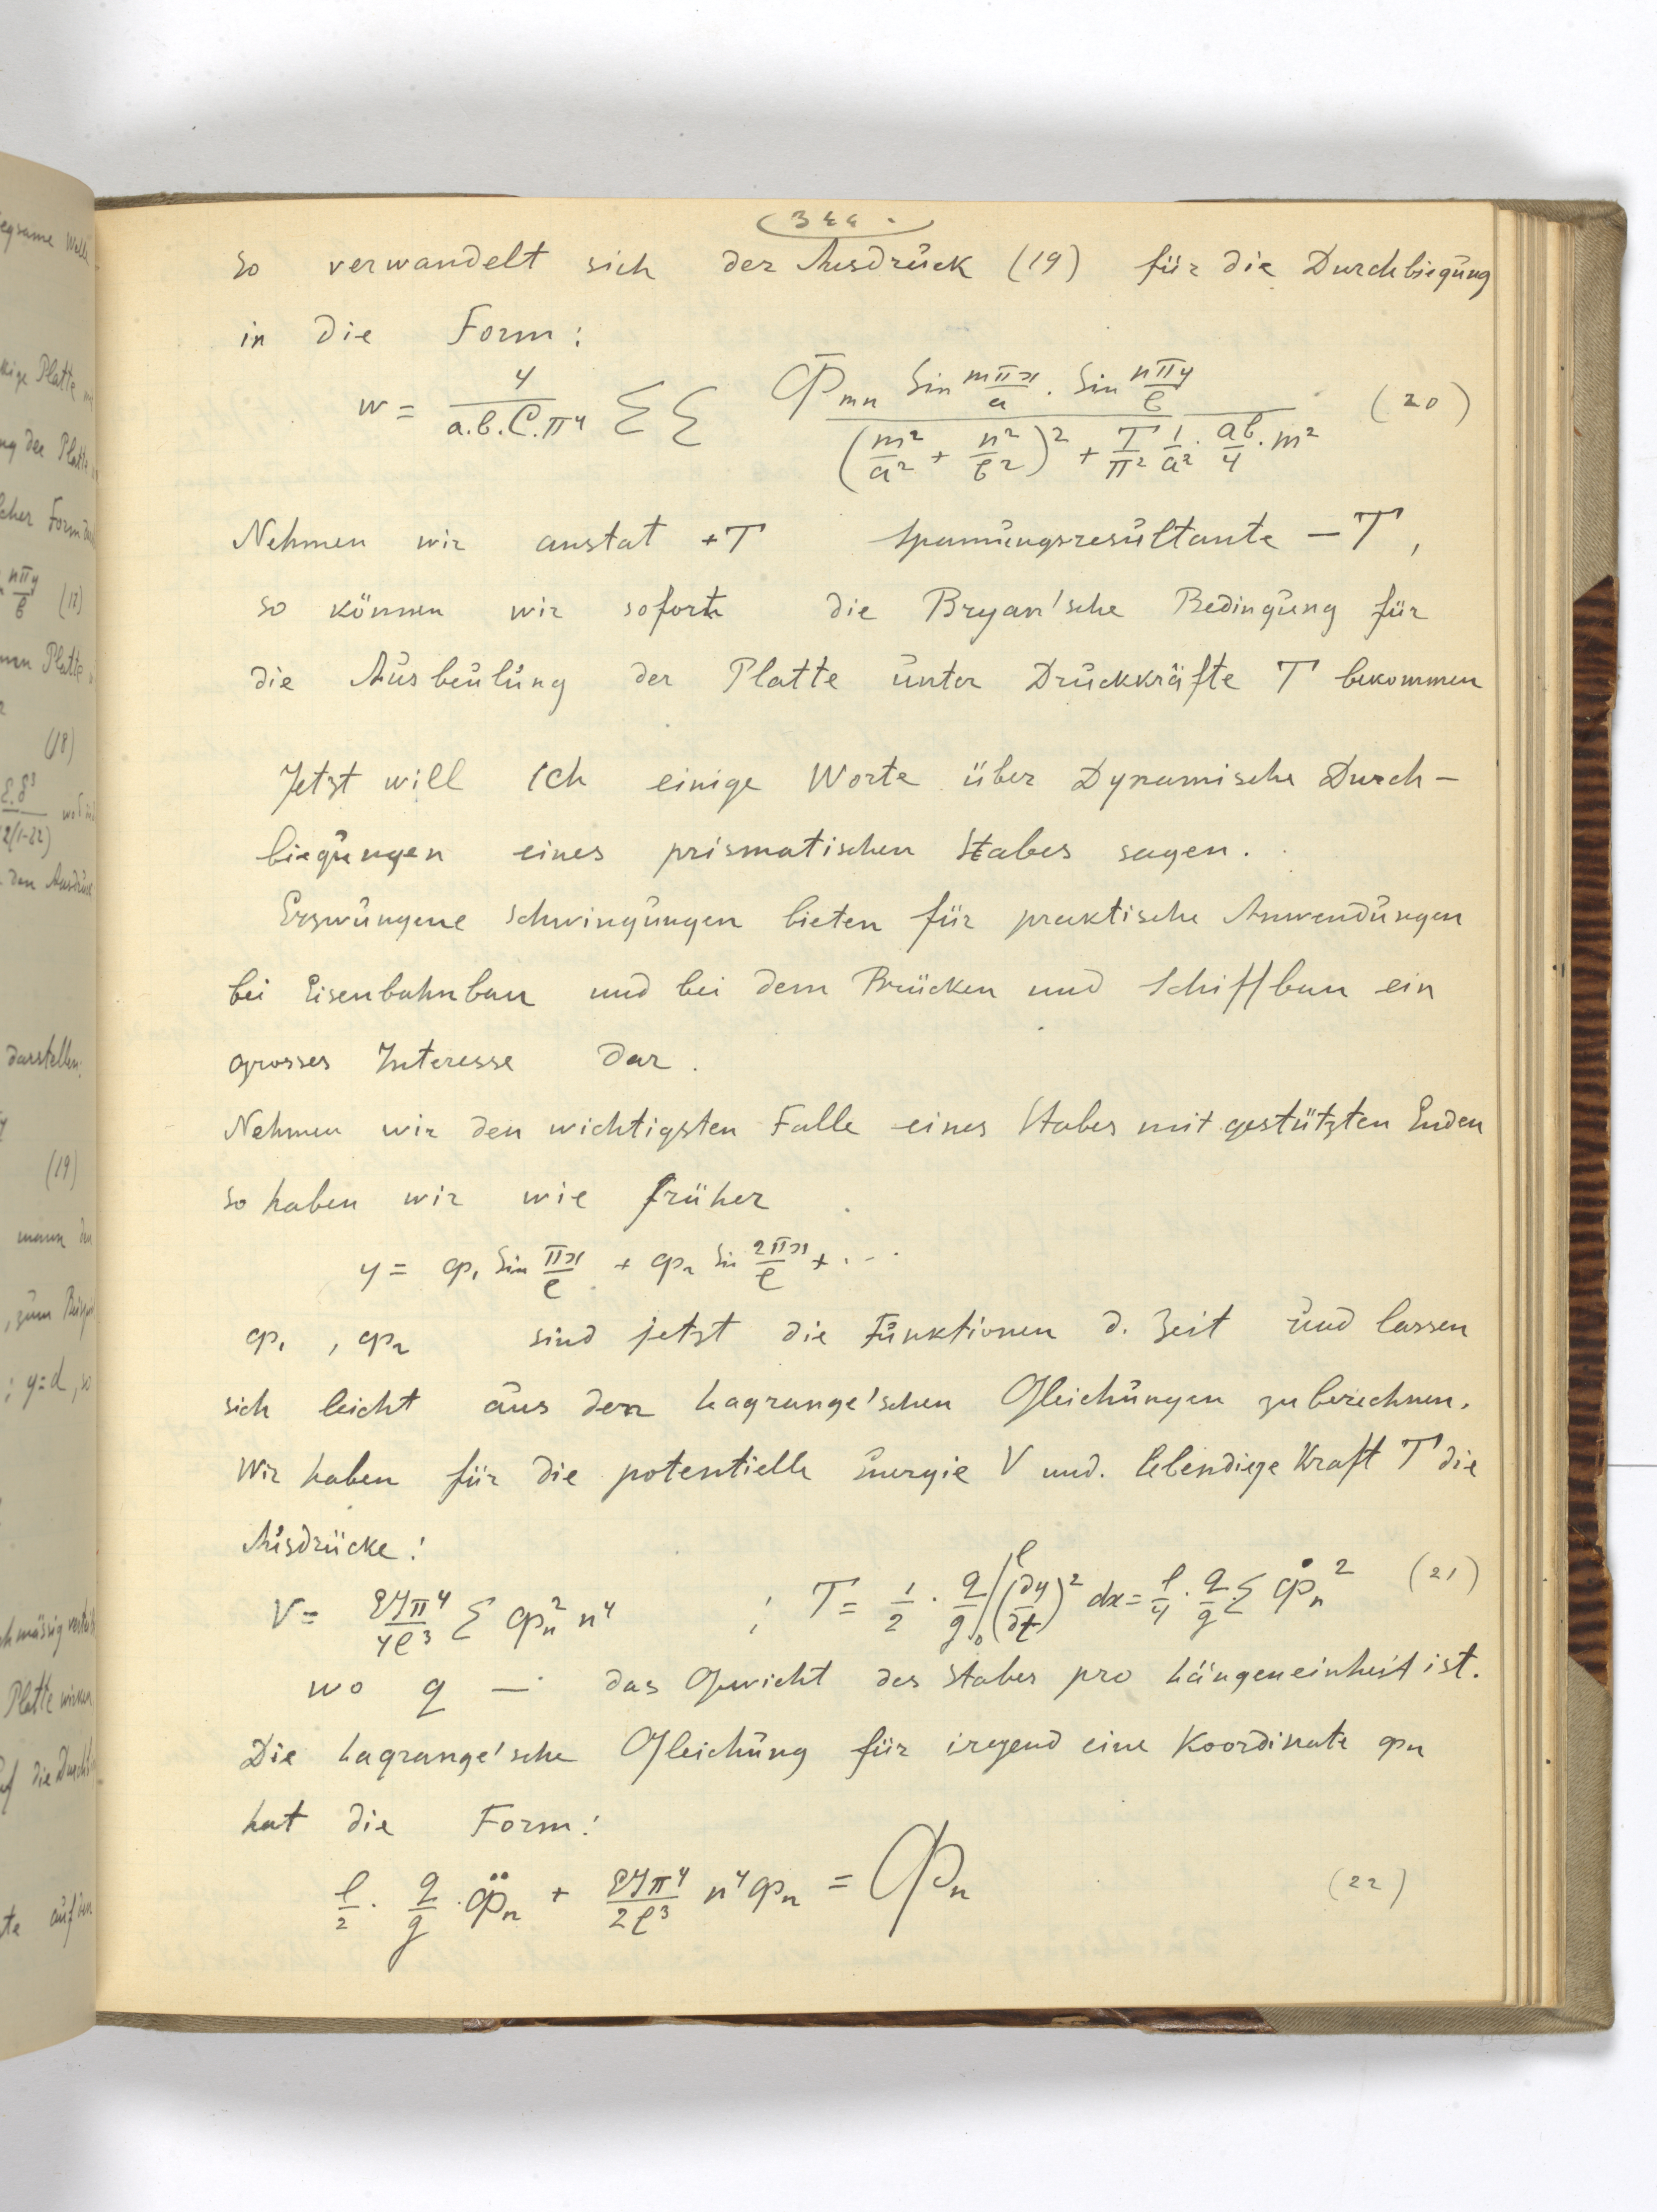 344.
so verwandelt sich der Ausdruck (19) für die Durchbiegung
in die Form:
w = 4/(a.b.C.π⁴) ΣΣ (Φ_mn Sin mπx/a . Sin nπy/b) / ((m²/a² + n²/b²)² + T/π² 1/a² . ab/4 . m²) (20)
Nehmen wir anstat +T Spannungsresultante – T,
so können wir sofort die Bryan'sche Bedingung für
die Ausbeulung der Platte unter Druckkräfte T bekommen
Jetzt will ich einige Worte über Dynamische Durch-
biegungen eines prismatischen Stabes sagen.
Erzwungene Schwingungen bieten für praktische Anwendungen
bei Eisenbahnbau und bei dem Brücken und Schiffbau ein
grosses Interesse dar.
Nehmen wir den wichtigsten Falle eines Stabes mit gestützten Enden
so haben wir wie früher
y = φ₁ Sin πx/l + φ₂ Sin 2πx/l + ...
φ₁ , φ₂ sind jetzt die Funktionen d. Zeit und lassen
sich leicht aus den Lagrange'schen Gleichungen zu berechnen.
Wir haben für die potentielle Energie V und. lebendige Kraft T die
Ausdrücke:
V = EJπ⁴/4l³ Σ φₙ² n⁴ ; T = 1/2 . q/g ∫₀ˡ (∂y/∂t)² dx = l/4 . q/g Σ φ̇ₙ² (21)
wo q — das Gewicht des Stabes pro Längeneinheit ist.
Die Lagrange'sche Gleichung für irgend eine Koordinate φₙ
hat die Form:
l/2 . q/g . φ̈ₙ + EJπ⁴/2l³ n⁴ φₙ = Φₙ (22)